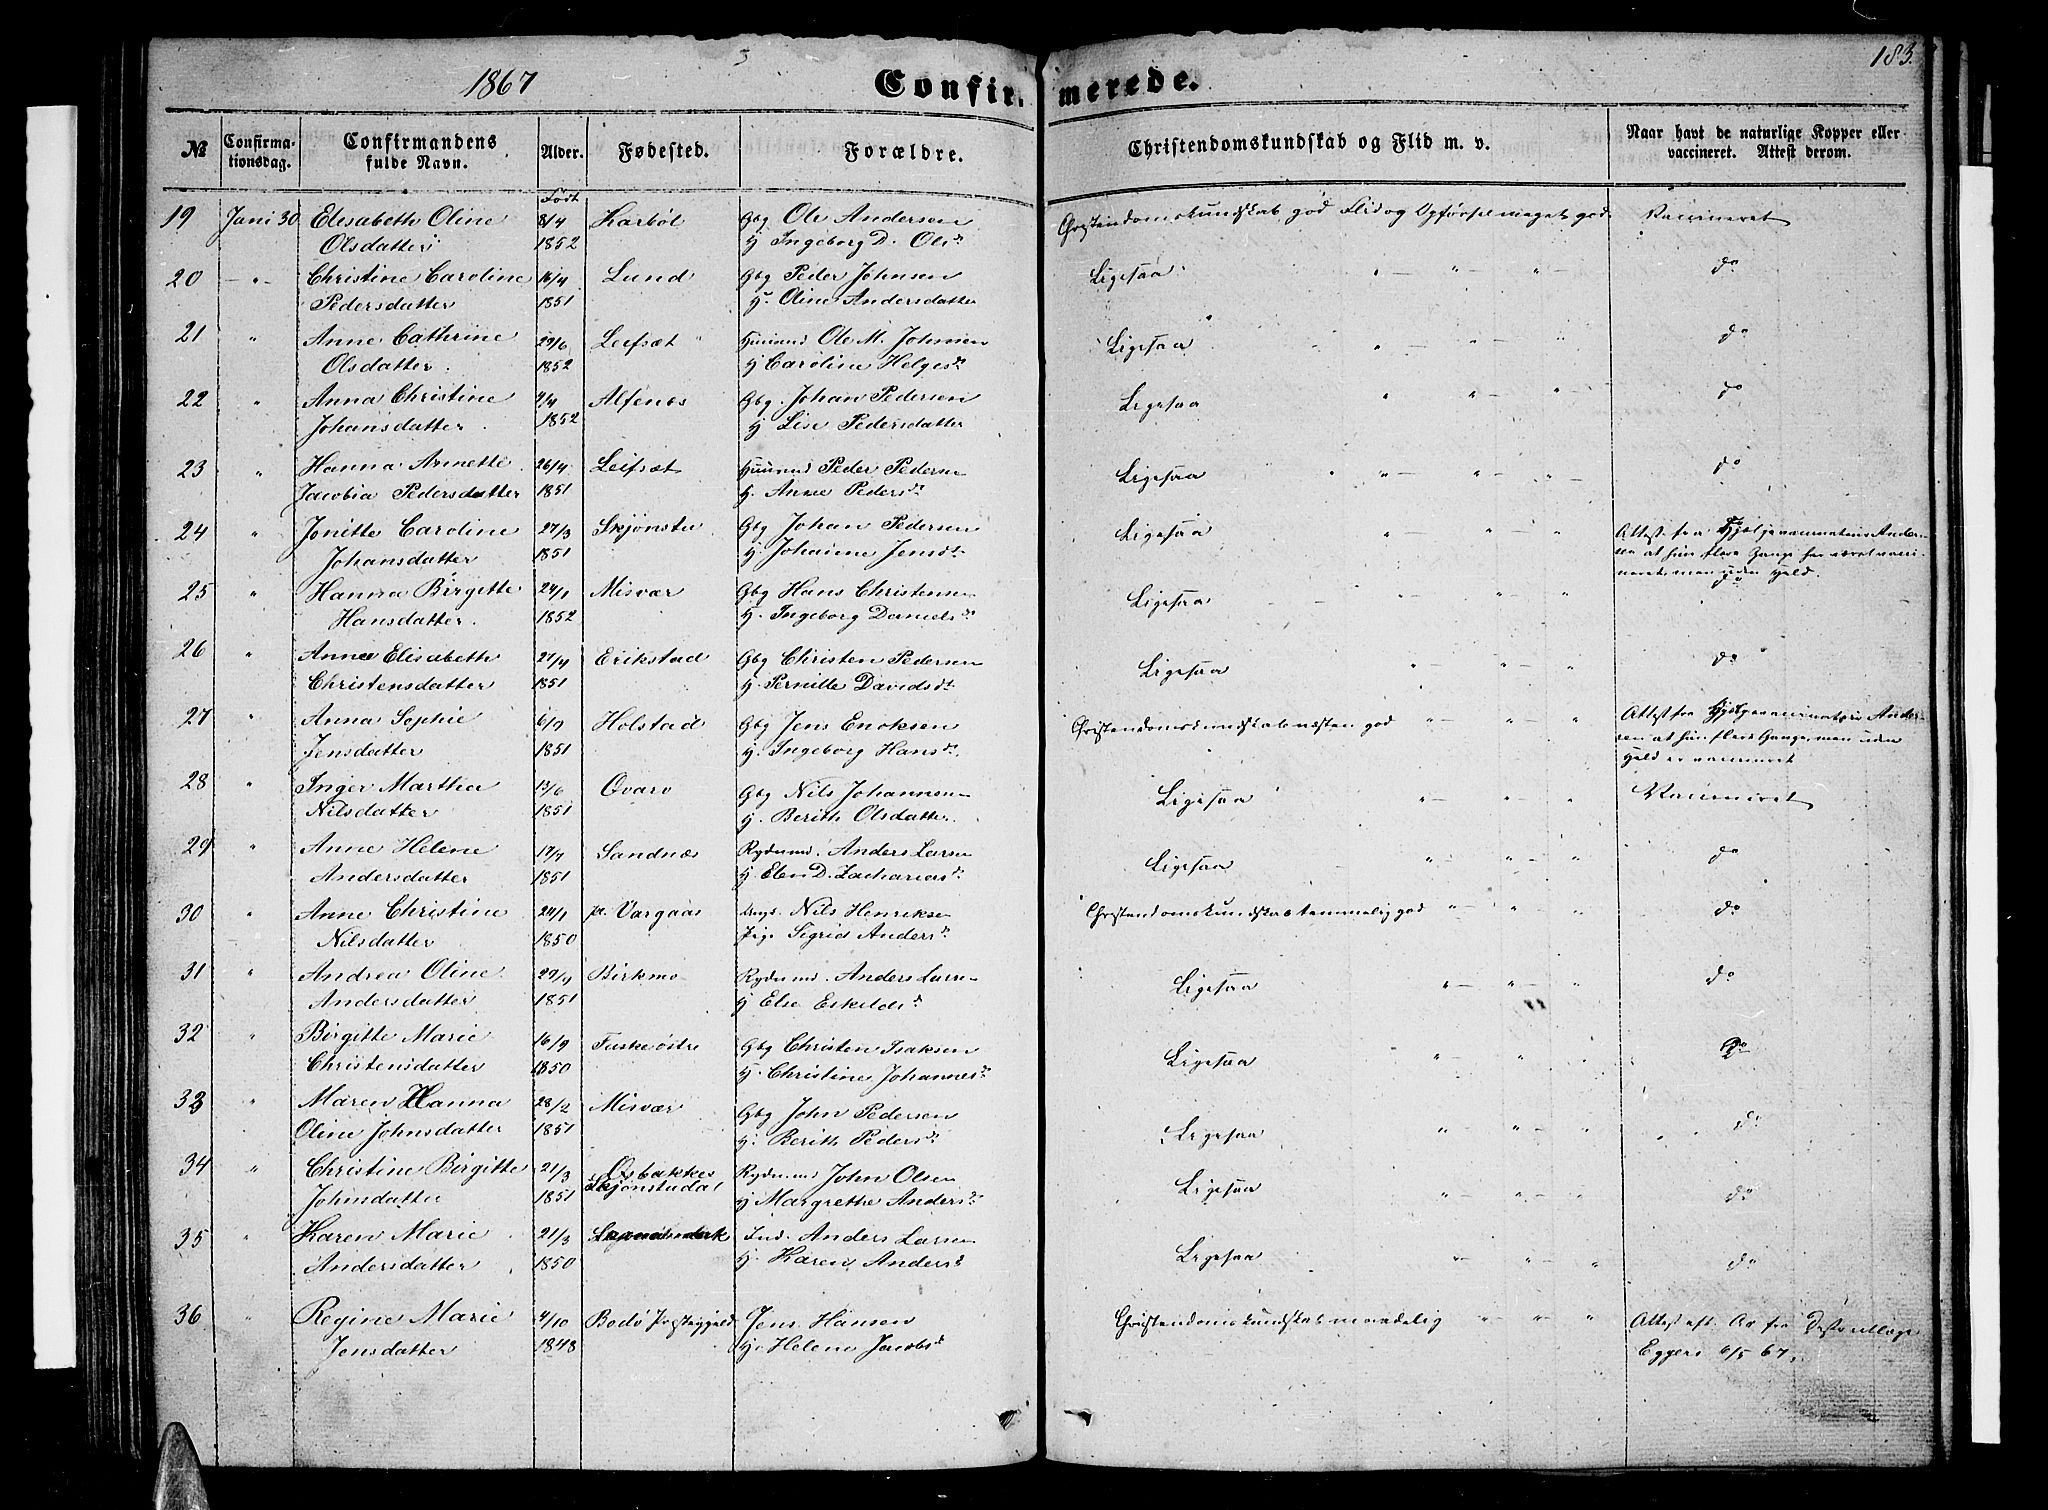 183.
1867 Confirmerede.
№ Confirmationsdag. Confirmandens fulde Navn. Alder. Fødested. Forældre. Christendomskundskab og Flid m. v. Naar havt de naturlige Kopper eller vaccineret. Attest derom.
Født
19 Juni 30 Elisabeth Oline 8/4 Karbøl Gbg Ole Andersen Christendomskundskab god Flid og Opførsel meget god Vaccineret
Olsdatter 1852 H Ingeborg D. Olsd.
20 — " — Christine Caroline 16/4 Lund Gbg Peder Johnsen Ligesaa " — " — " — do
Pedersdatter 1851 H. Oline Andersdatter
21 " Anne Cathrine 29/6 Leifsæt Huusmd Ole M. Johnsen Ligesaa " — " — " — do
Olsdatter 1852 H Caroline Helgesd.
22 " Anna Christine 9/4 Alfenes Gbg. Johan Pedersen Ligesaa " " — " — do
Johansdatter 1852 H Lise Pedersdatter
23 " Hanna Annette 26/4 Leifsæt Huusmd Peder Pedersen Ligesaa " — " — " — do
Jacobia Pedersdatter 1851 H. Anne Pedersd.
24 " Jonette Caroline 27/3 Skjønstu Gbg Johan Pedersen Ligesaa " — " — " Attest fra Hjælpevaccinatør Ander-
Johansdatter 1851 H Johanne Jensdt. sen at hun flere Gange har været vacci-
neret, men uden Held.
25 " Hanna Birgitte 24/1 Misvær Gbg Hans Christensen Ligesaa " — " — " do
Hansdatter. 1852 H. Ingeborg Danielsd.
26 " Anne Elisabeth 27/4 Erikstad Gbg Christen Pedersen Ligesaa " — " — " do
Christensdatter 1851 H. Pernille Davidsdt.
27 " Anna Sophie Holstad Gbg Jens Enoksen Christendomskundskab næsten god " — " — " Attest fra Hjælpevaccinatør Ander-
Jensdatter 1851 H. Ingeborg Hansd. sen at hun flere Gange, men uden
Held er vaccineret
28 " Inger Martha 13/6 Qvarv Gbg Nils Johannesen Ligesaa " — " — " Vaccineret
Nilsdatter 1851 H. Berith Olsdatter.
29 " Anne Helene 17/7 Sandnæs Rydnmd. Anders Larsen Ligesaa " — " — " do
Andersdatter 1851 H. Elen D. Zachariasd.
30 " Anne Christine 24/1 Vargaas Nils Henriksen Christendomskundskab temmelig god " — " " do
Nilsdatter 1850 Pige Sigrid Andersd.
31 " Andrea Oline 29/9 Birkmo Rydnmd. Anders Larsen Ligesaa " — " — " do
Andersdatter 1851 H Else Eskildsd.
32 " Birgitte Marie 16/9 Fuske østre Gbg Christen Isaksen Ligesaa " — " " do
Christensdatter 1850 H. Christine Johannesd.
33 " Maren Hanna 28/2 Misvær Gbg John Pedersen Ligesaa " " — " do
Oline Johnsdatter 1851 H. Berith Pedersd.
34 " Christine Birgitte 21/3 Osbakken Rydnmd John Olsen Ligesaa " — " — " do
Johnsdatter 1851 Skjønstudal H Margrethe Andersd.
35 " Karen Marie 21/3 Ind. Anders Larsen Ligesaa " — " — " do
Andersdatter 1850 H. Karen Andersd.
36 " Regine Marie 4/10 Bodø Præstegjeld Jens Hansen Christendomskundskab maadelig " — " — " Attest fra Distriktslæge
Jensdatter 1848 H. Helene Jacobsd. Eggers 6/5 67.